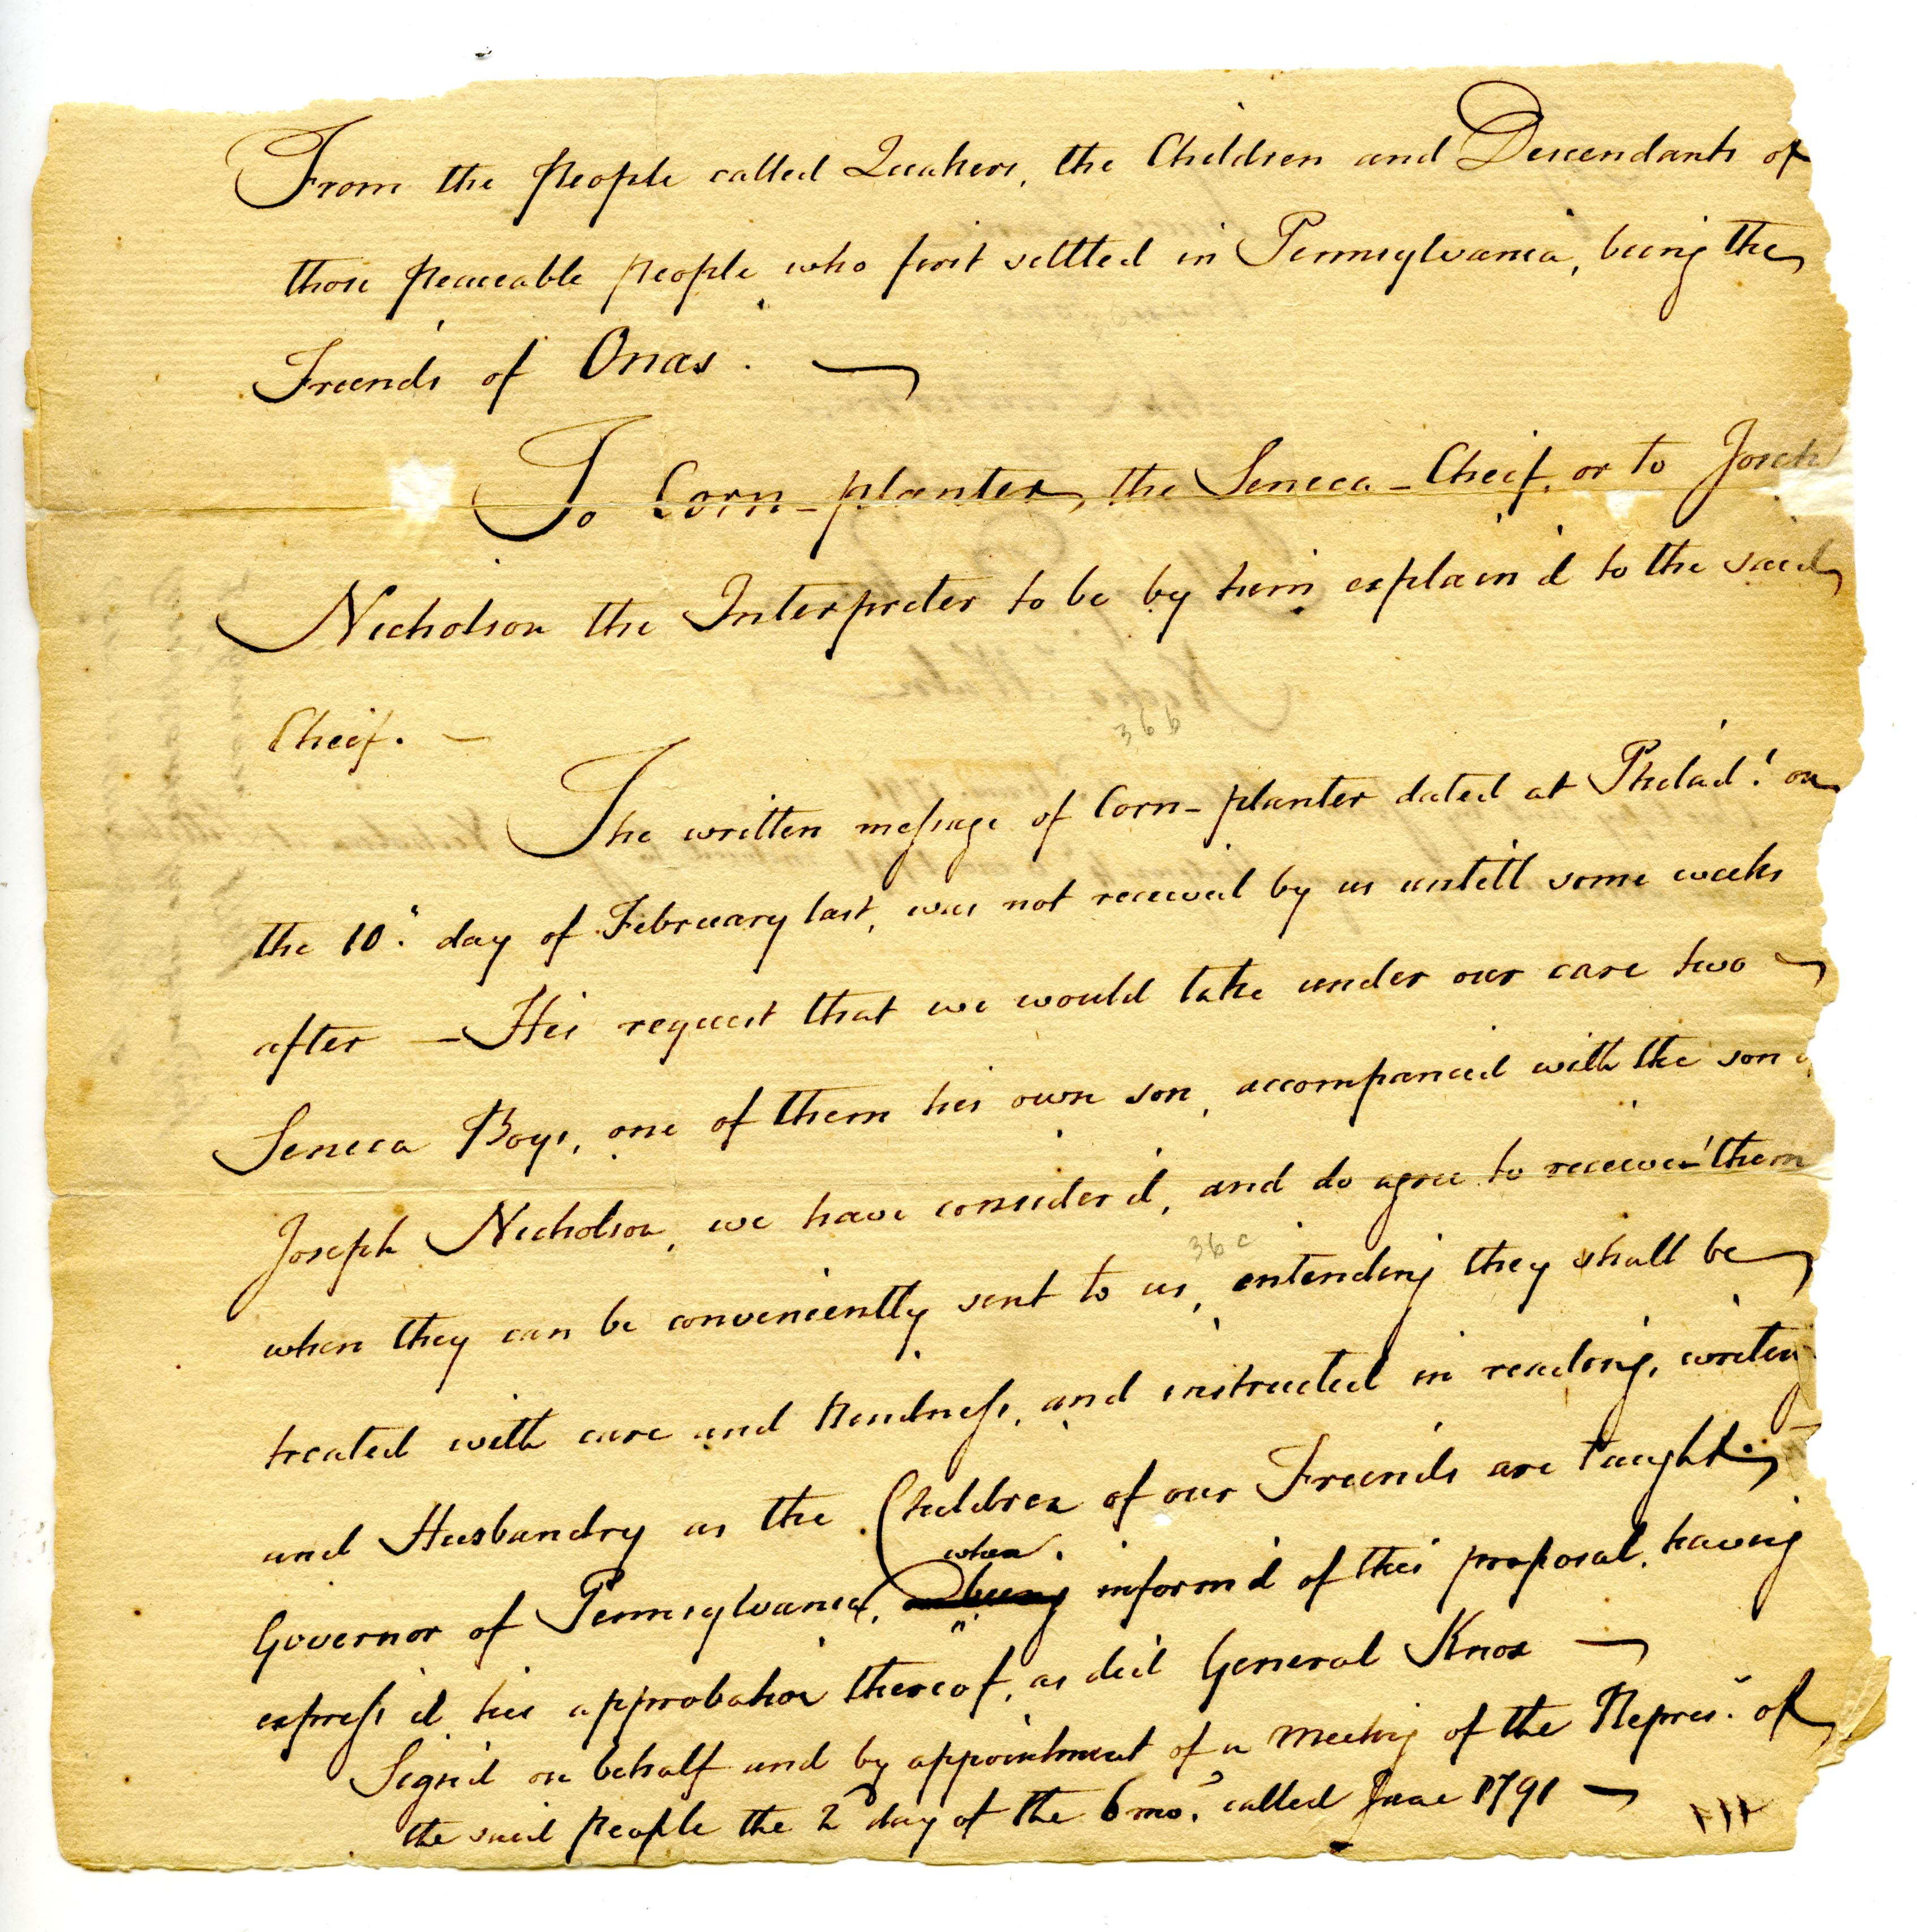 From the People called Quakers, the Children and Descendants of
those Peaceable People who first settled in Pennsylvania, being the
Friends of Onas. —
To Corn-planter, the Seneca-Cheif, or to Joseph
Nicholson the Interpreter to be by him explain'd to the said
Cheif. —
36b
The written message of Corn-planter dated at Philad.ᵃ on
the 10.ᵗʰ day of February last, was not received by us untill some weeks
after — His request that we would take under our care two
Seneca Boys, one of them his own son, accompanied with the son of
Joseph Nicholson, we have consider'd, and do agree to receive them
36c
when they can be conveniently sent to us, intending they shall be
treated with care and kindness, and instructed in reading, writing
and Husbandry as the Children of our Friends are taught;
when
Governor of Pennsylvania, being inform'd of this proposal, having
express'd his approbation thereof, as did General Knox —
Sign'd on behalf and by appointment of a meeting of the Repres.ˢ of
the said People the 2ᵈ day of the 6 mo. called June 1791 —